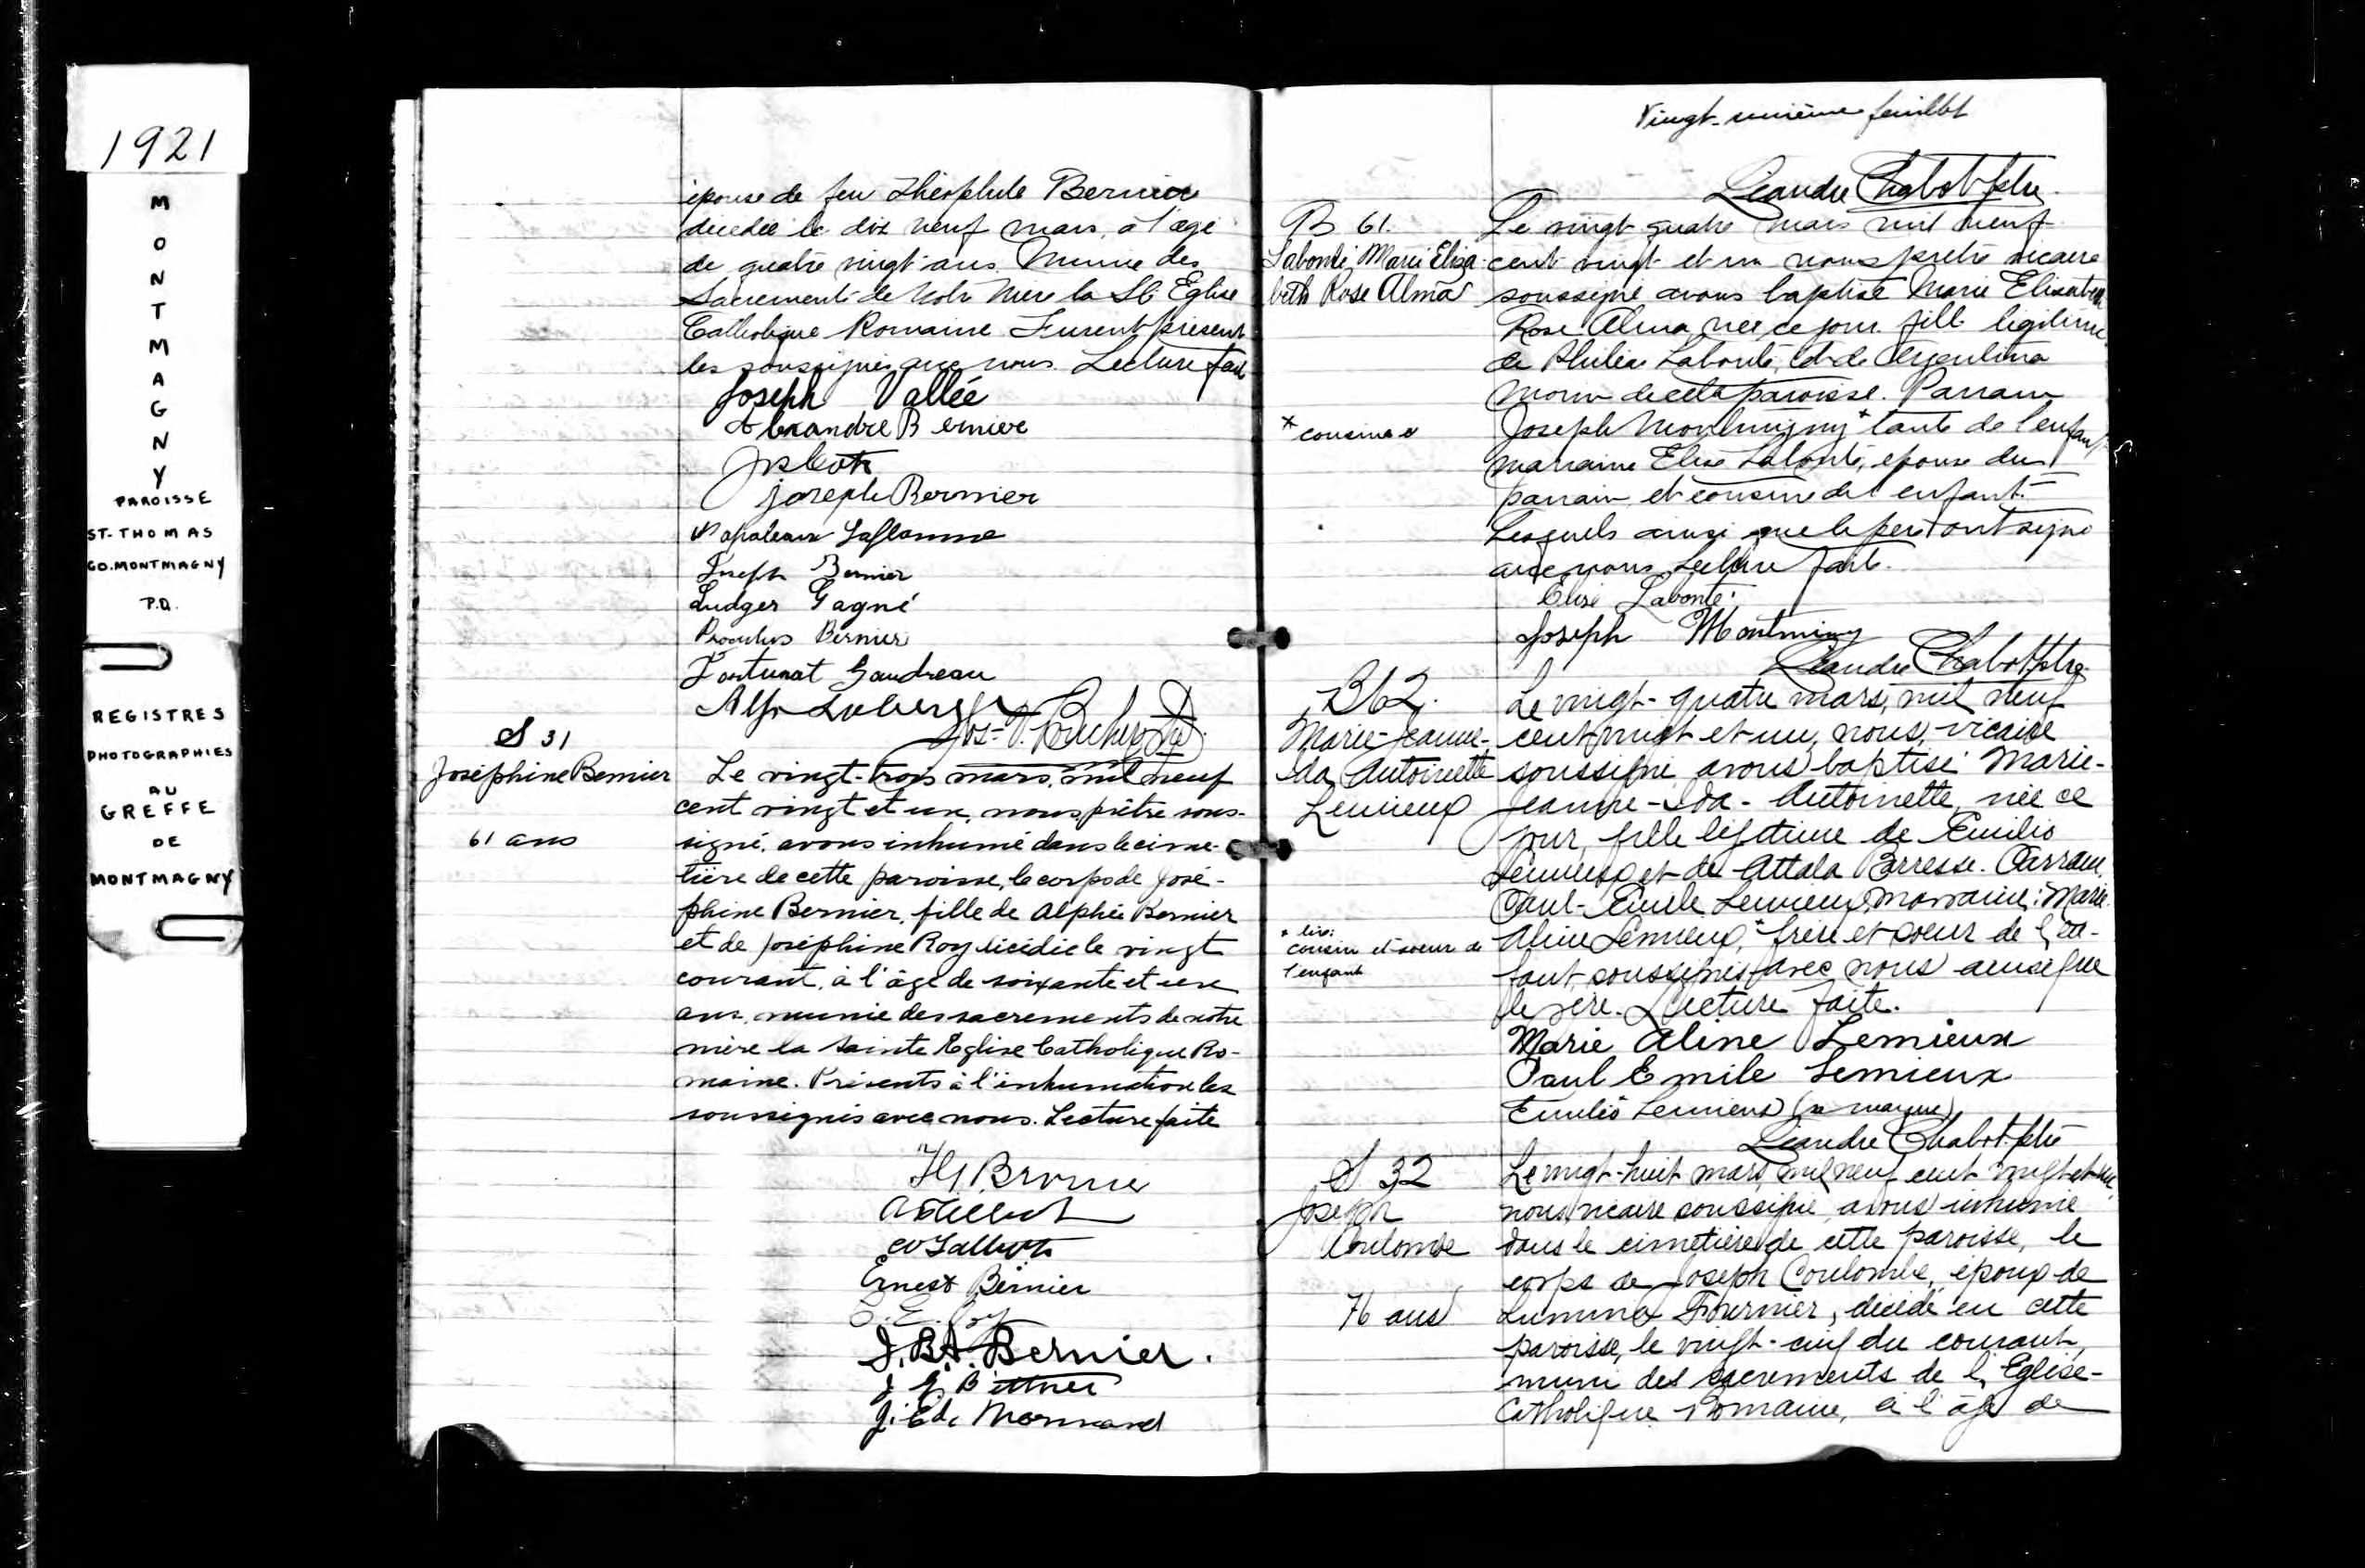 1921
MONTMAGNY
PAROISSE
ST-THOMAS
CO. MONTMAGNY
P.Q.
REGISTRES
PHOTOGRAPHIES
AU
GREFFE
DE
MONTMAGNY
épouse de feu Théophile Bernier
décédée le dix neuf mars, à l'age
de quatre vingt ans Munie des
Sacrements de Notre Mère la Ste Eglise
Catholique Romaine. Furent présents
les soussignés avec nous. Lecture faite
Joseph Vallée
Alexandre Bernier
Joseph Bernier
Napoleon Laflamme
Joseph Bernier
Ludger Gagné
Proculus Bernier
Fortunat Gaudreau
S 31
Joséphine Bernier
61 ans
Le vingt-trois mars, mil neuf
cent vingt et un, nous, prêtre sous-
signé, avons inhumé dans le cime-
tière de cette paroisse, le corps de José-
phine Bernier, fille de Alphée Bernier
et de Joséphine Roy décédée le vingt
courant, à l'âge de soixante et une
ans, munie des sacrements de notre
mère la Sainte Eglise Catholique Ro-
maine. Présents à l'inhumation les
soussignés avec nous. Lecture faite
Ernest Bernier
J. B. A. Bernier.
J. Ed. Normand
Vingt-unième feuillet
Léandre Chabot ptre.
B 61.
Labonté Marie Eliza
beth Rose Alma
Le vingt quatre mars mil neuf
cent vingt et un nous prêtre vicaire
soussigné avons baptisé Marie Elisabeth
Rose Alma née ce jour fille légitime
de Philéas Labonté, et de Argentina
Morin de cette paroisse. Parrain
* cousine
Joseph Montmigny * tante de l'enfant
marraine Elise Labonté, épouse du
parrain et cousine de l'enfant.
Lesquels ainsi que le père ont signé
avec nous Lecture faite.
Elise Labonté.
Joseph Montminy
Léandre Chabot ptre.
B 62.
Marie-Jeanne-
Ida Antoinette
Lemieux
Le vingt-quatre mars, mil neuf
cent vingt et un, nous, vicaire
soussigné avons baptisé Marie-
Jeanne-Ida-Antoinette, née ce
jour, fille légitime de Emilio
Lemieux et de Attala Barresse. Parrain,
Paul-Emile Lemieux, marraine: Marie
* lire:
cousin et soeur de
l'enfant
Aline Lemieux, * frère et soeur de l'en-
fant, soussignés avec nous ainsi que
le père. Lecture faite.
Marie Aline Lemieux
Paul Emile Lemieux
Emilio Lemieux (sa marque)
Léandre Chabot ptre
S 32
Joseph
Coulombe
76 ans
Le vingt-huit mars, mil neuf cent vingt et un,
nous, vicaire soussigné, avons inhumé
dans le cimetière de cette paroisse, le
corps de Joseph Coulombe, époux de
Lumina Fournier, décédé en cette
paroisse, le vingt-cinq du courant,
muni des sacrements de l'Eglise-
Catholique Romaine, à l'âge de